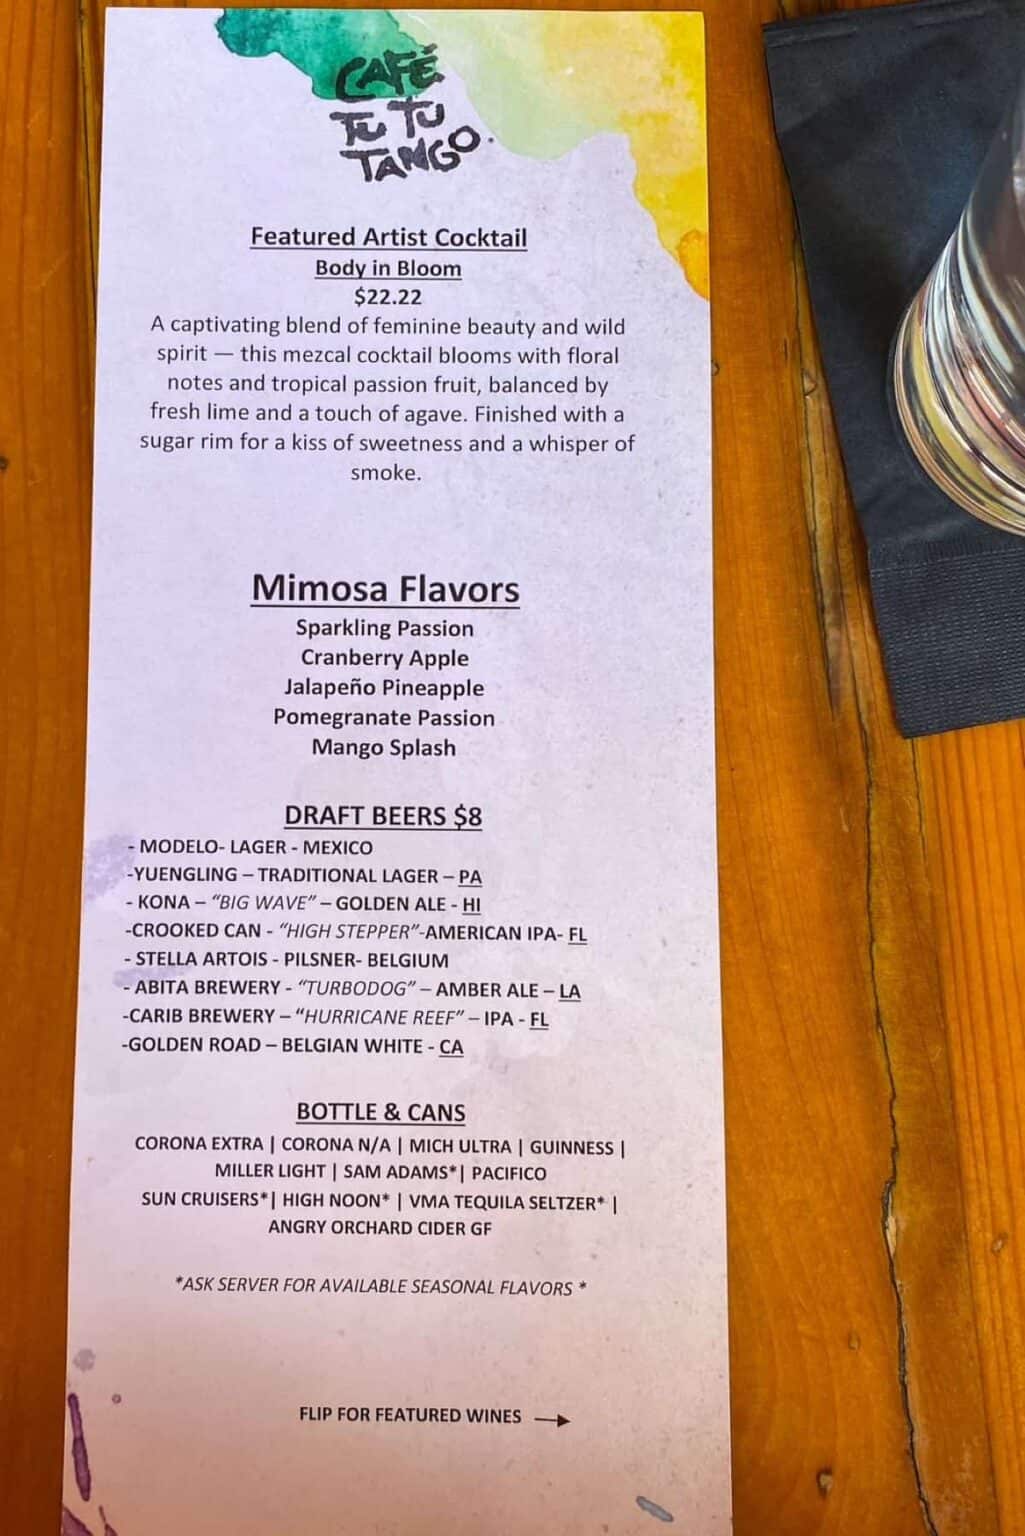 CAFÉ
TU TU
TANGO.
Featured Artist Cocktail
Body in Bloom
$22.22
A captivating blend of feminine beauty and wild
spirit — this mezcal cocktail blooms with floral
notes and tropical passion fruit, balanced by
fresh lime and a touch of agave. Finished with a
sugar rim for a kiss of sweetness and a whisper of
smoke.
Mimosa Flavors
Sparkling Passion
Cranberry Apple
Jalapeño Pineapple
Pomegranate Passion
Mango Splash
DRAFT BEERS $8
- MODELO- LAGER - MEXICO
-YUENGLING – TRADITIONAL LAGER – PA
- KONA – “BIG WAVE” – GOLDEN ALE - HI
-CROOKED CAN - “HIGH STEPPER”-AMERICAN IPA- FL
- STELLA ARTOIS - PILSNER- BELGIUM
- ABITA BREWERY - “TURBODOG” – AMBER ALE – LA
-CARIB BREWERY – “HURRICANE REEF” – IPA - FL
-GOLDEN ROAD – BELGIAN WHITE - CA
BOTTLE & CANS
CORONA EXTRA | CORONA N/A | MICH ULTRA | GUINNESS |
MILLER LIGHT | SAM ADAMS*| PACIFICO
SUN CRUISERS*| HIGH NOON* | VMA TEQUILA SELTZER* |
ANGRY ORCHARD CIDER GF
*ASK SERVER FOR AVAILABLE SEASONAL FLAVORS *
FLIP FOR FEATURED WINES →